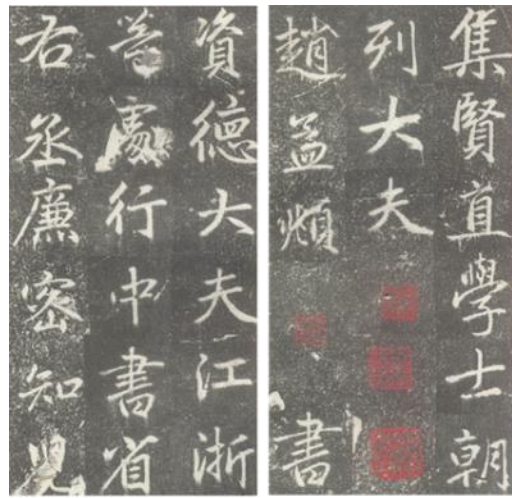 集賢直學士朝
列大夫
趙孟頫 書
資德大夫江浙
等處行中書省
右丞廉密知兒